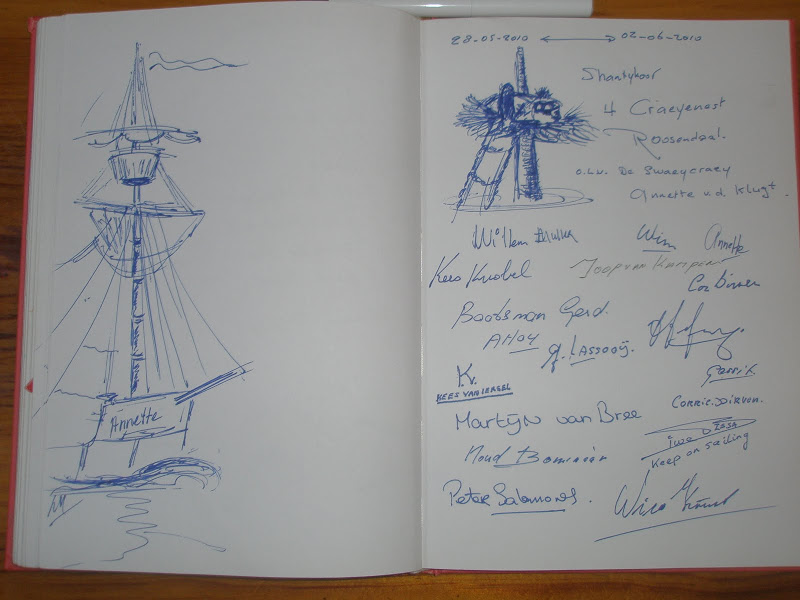 Annette
28-05-2010 ⟷ 02-06-2010
Shantykoor
4 Craeyenest
Roosendaal.
o.l.v. De Swaeycraey
Annette v.d. Klugt.
Willem
Wim
Annette
Kees Knobel
Joop van Kampen
Bootsman Gerd.
AHOY
J. Lassooij.
K.
KEES VAN IERSEL
Gerrit
CORRIE DIRVEN.
Martijn van Bree
Keep on sailing
Ruud
Peter Salomons.
Wico